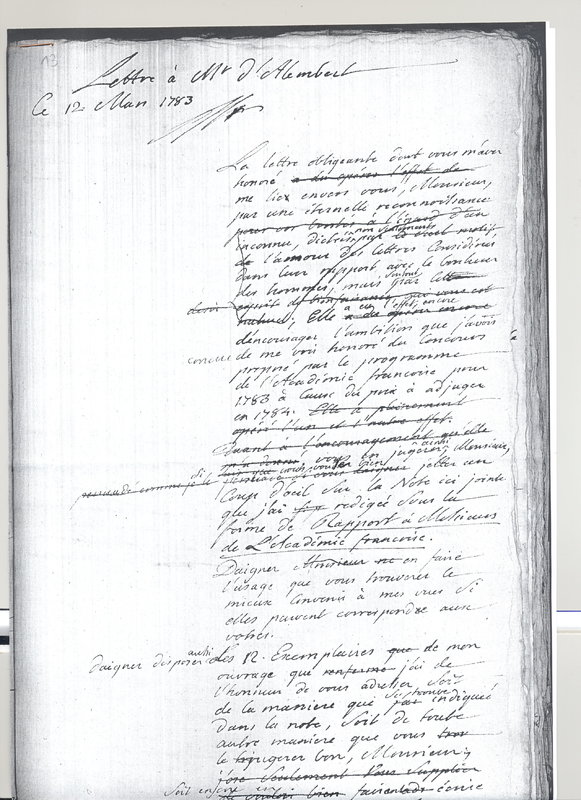 13
Lettre à Mr d'Alembert
Ce 12 Mars 1783
La lettre obligeante dont vous m'avez
honoré a du opérer l'effet de
me lier envers vous, Monsieur,
par une éternelle reconnoissance
pour vos bontés à l'égard d'un
inconnu, dictées non seulement par le seul motif
de l'amour des lettres Considérées
dans leur rapport avec le bonheur
des hommes, mais surtout par cette
desir esprit de bienfaisance qui vous est
naturel; Elle a eu l'effet, encore a du opérer encore
d'encourager l'ambition que j'avois
de me voir honoré du Concours
proposé par le programme
de l'Académie francoise pour
1783 à Cause du prix à adjuger
en 1784. Elle a pleinement
opéré l'un et l'autre effet.
Quant à l'encouragement qu'elle
m'a donné, vous en jugerez ainsi, Monsieur,
persuadé comme je le si vous voulez bien jetter un
Coup d'oeil sur la Note ici jointe
que j'ai redigée sous la
forme de Rapport à Messieurs
de L'Académie francoise.
Daigner Monsieur en faire
l'usage que vous trouverez le
mieux Convenir à mes vues Si
elles peuvent correspondre aux
votres.
Daigner disposer aussi des 12. Exemplaires que de mon
ouvrage que renferme j'ai de
l'honneur de vous adresser Soit
de la maniere que se trouve indiquée
dans la note, Soit de toute
autre maniere que vous
le jugerez bon, Monsieur;
j'ose Seulement Vous Supplier
Soit enfin bien faire